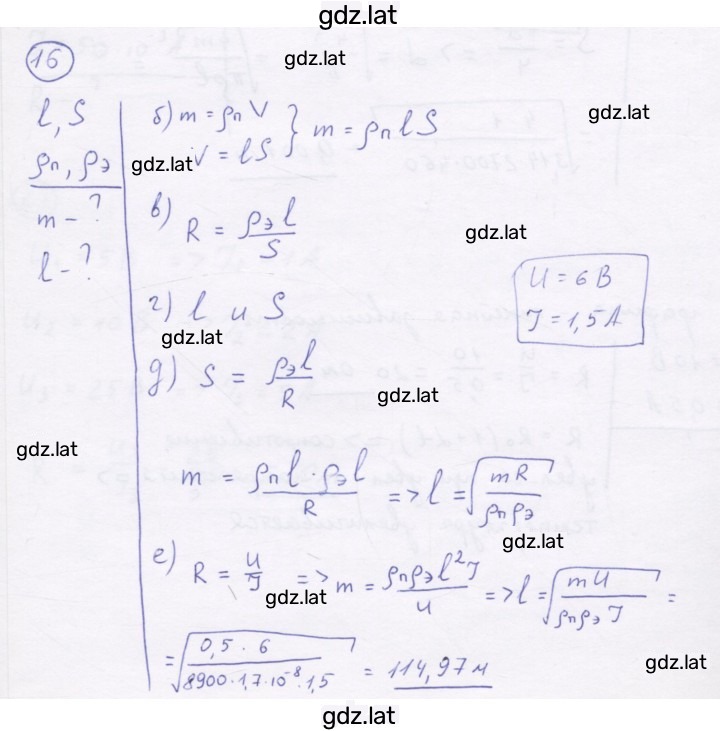 gdz.lat
16
gdz.lat
l, S
ρп, ρэ
m - ?
l - ?
б) m = ρп V
V = lS } m = ρп lS
gdz.lat
gdz.lat
в) R = ρэ l / S
gdz.lat
г) l и S
gdz.lat
U = 6 В
I = 1,5 А
д) S = ρэ l / R
gdz.lat
gdz.lat
m = ρп l · ρэ l / R => l = √(mR / ρп ρэ)
gdz.lat
е) R = U / I => m = ρп ρэ l² I / U => l = √(mU / ρп ρэ I) =
gdz.lat
= √(0,5 · 6 / 8900 · 1,7 · 10⁻⁸ · 1,5) = 114,97 м
gdz.lat
gdz.lat